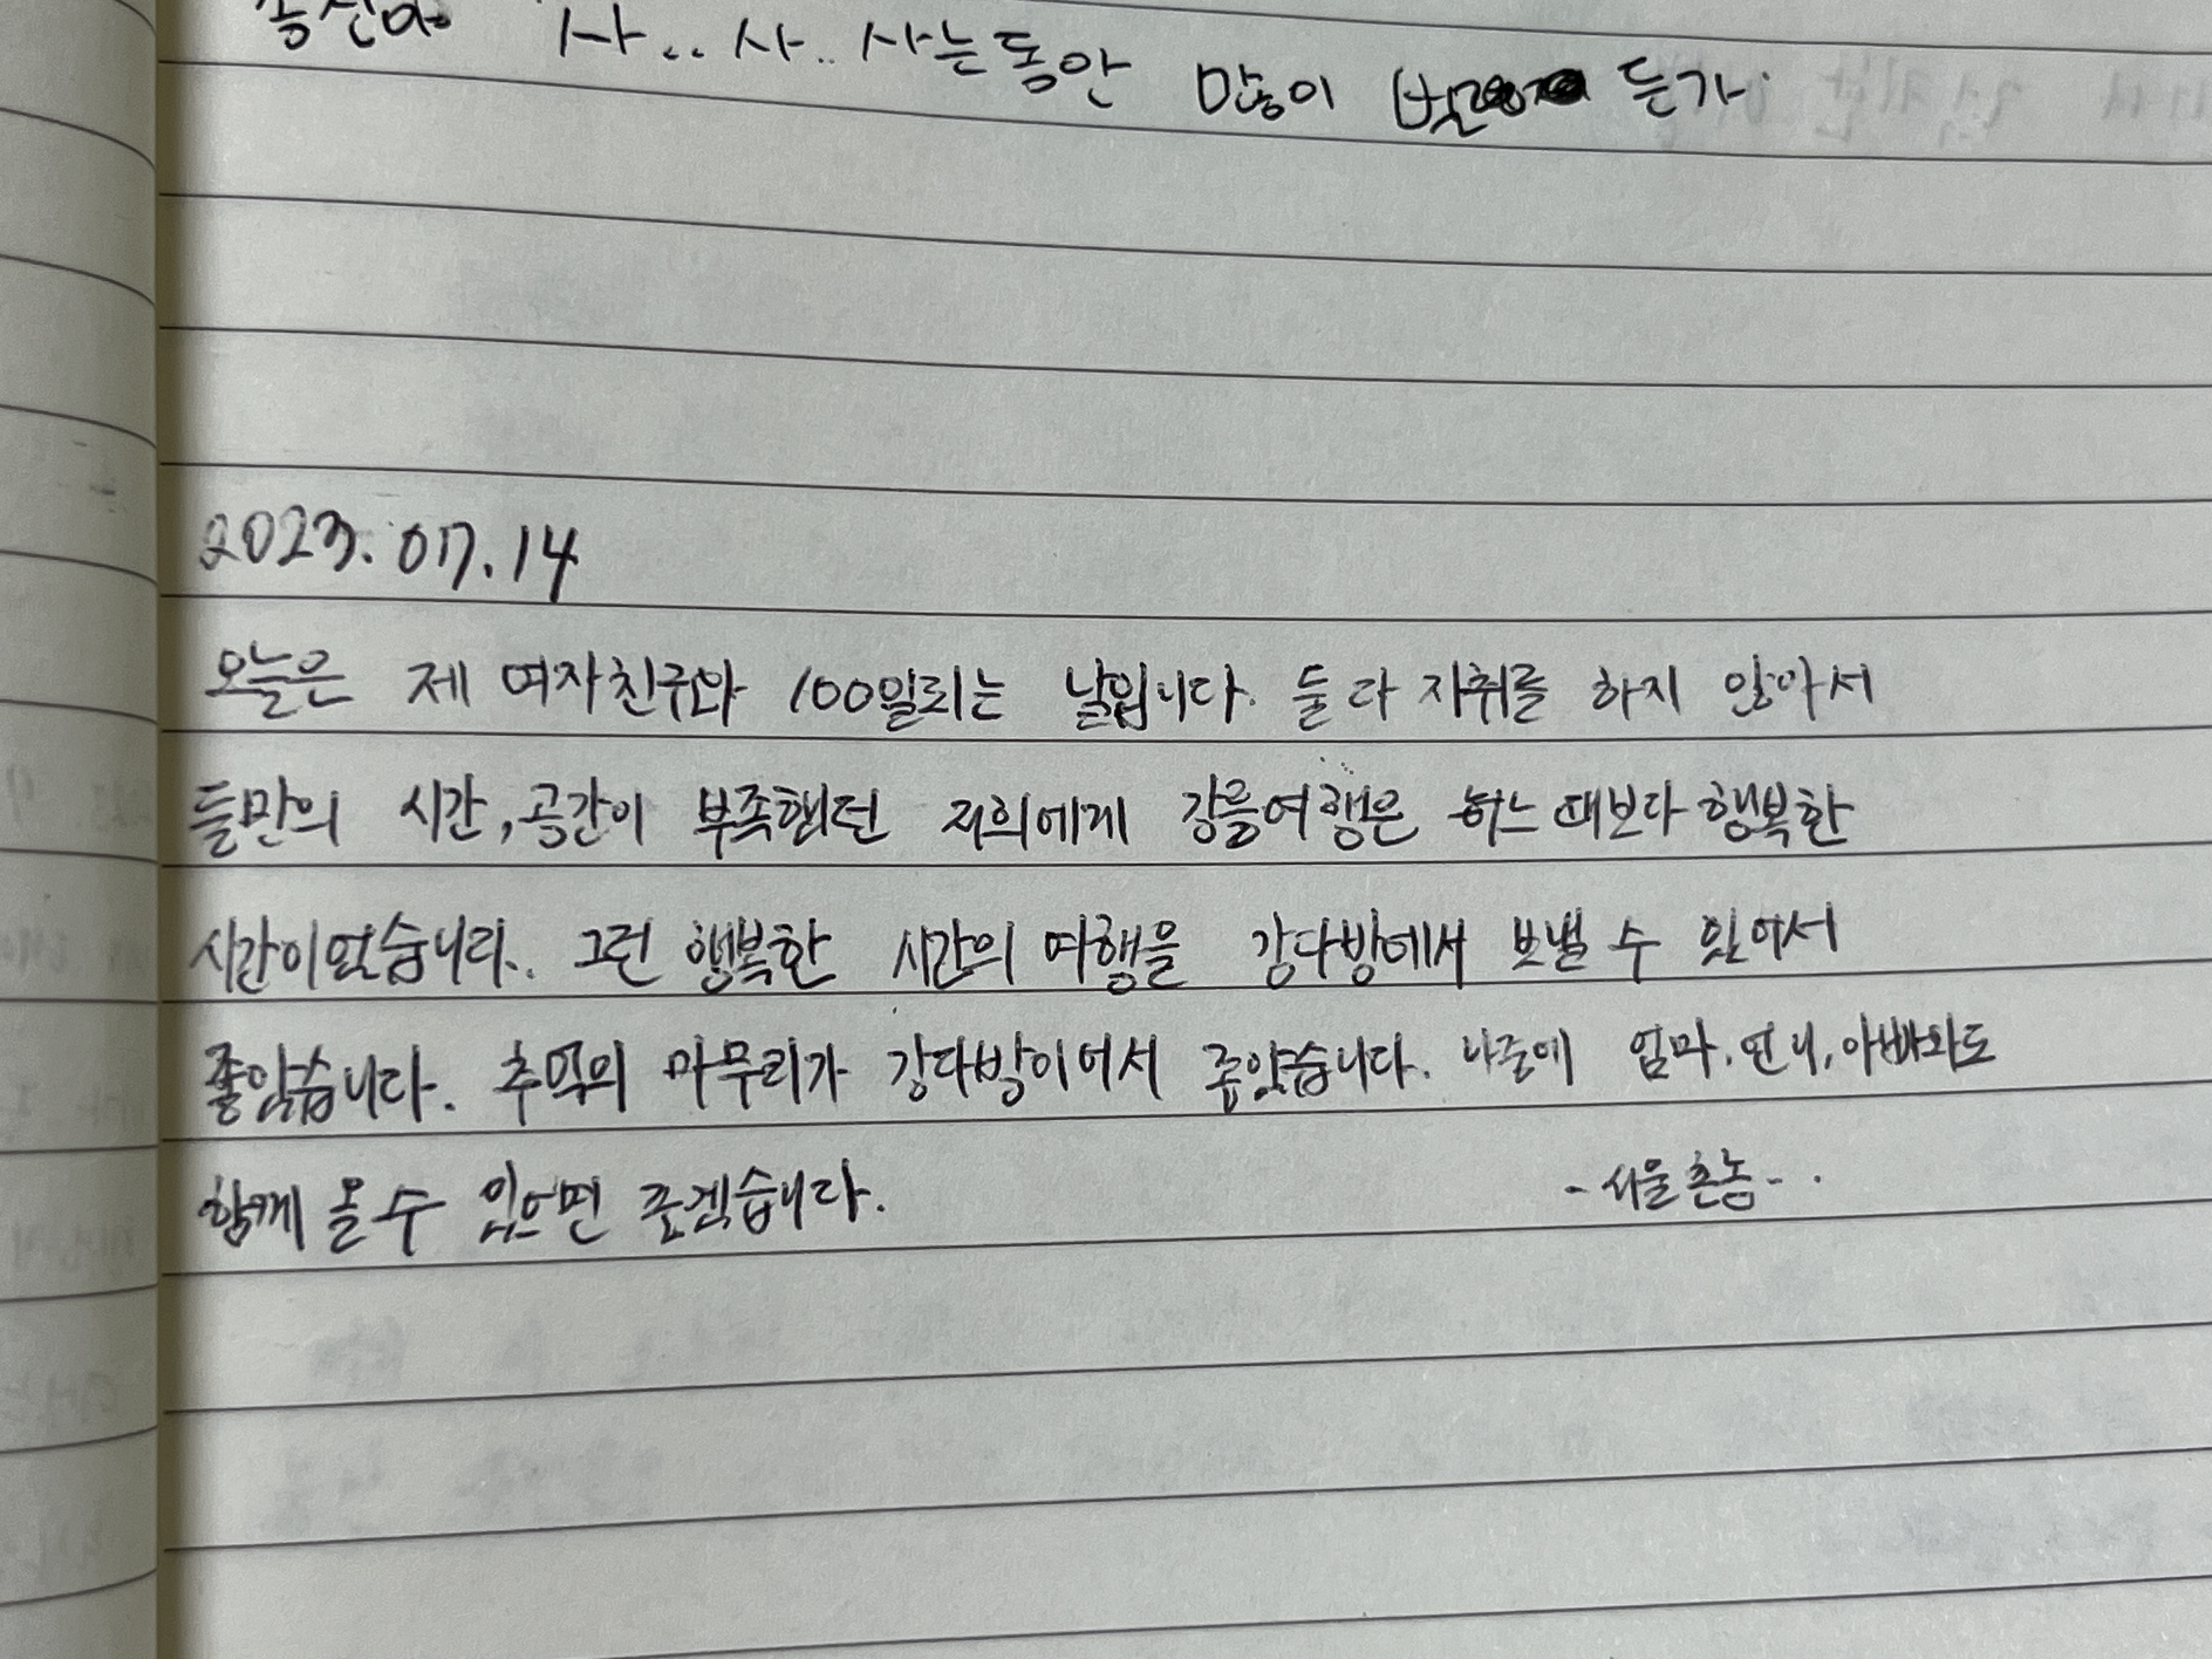 사.. 사.. 사는동안 많이 듣가
2023.07.14
오늘은 제 여자친구와 100일되는 날입니다. 둘 다 자취를 하지 않아서
둘만의 시간, 공간이 부족했던 저희에게 강릉여행은 어느 때보다 행복한
시간이었습니다.. 그런 행복한 시간의 여행을 강다방에서 보낼 수 있어서
좋았습니다. 추억의 마무리가 강다방이어서 좋았습니다. 나중에 엄마, 언니, 아빠와도
함께 올 수 있으면 좋겠습니다. - 서울 촌놈 -